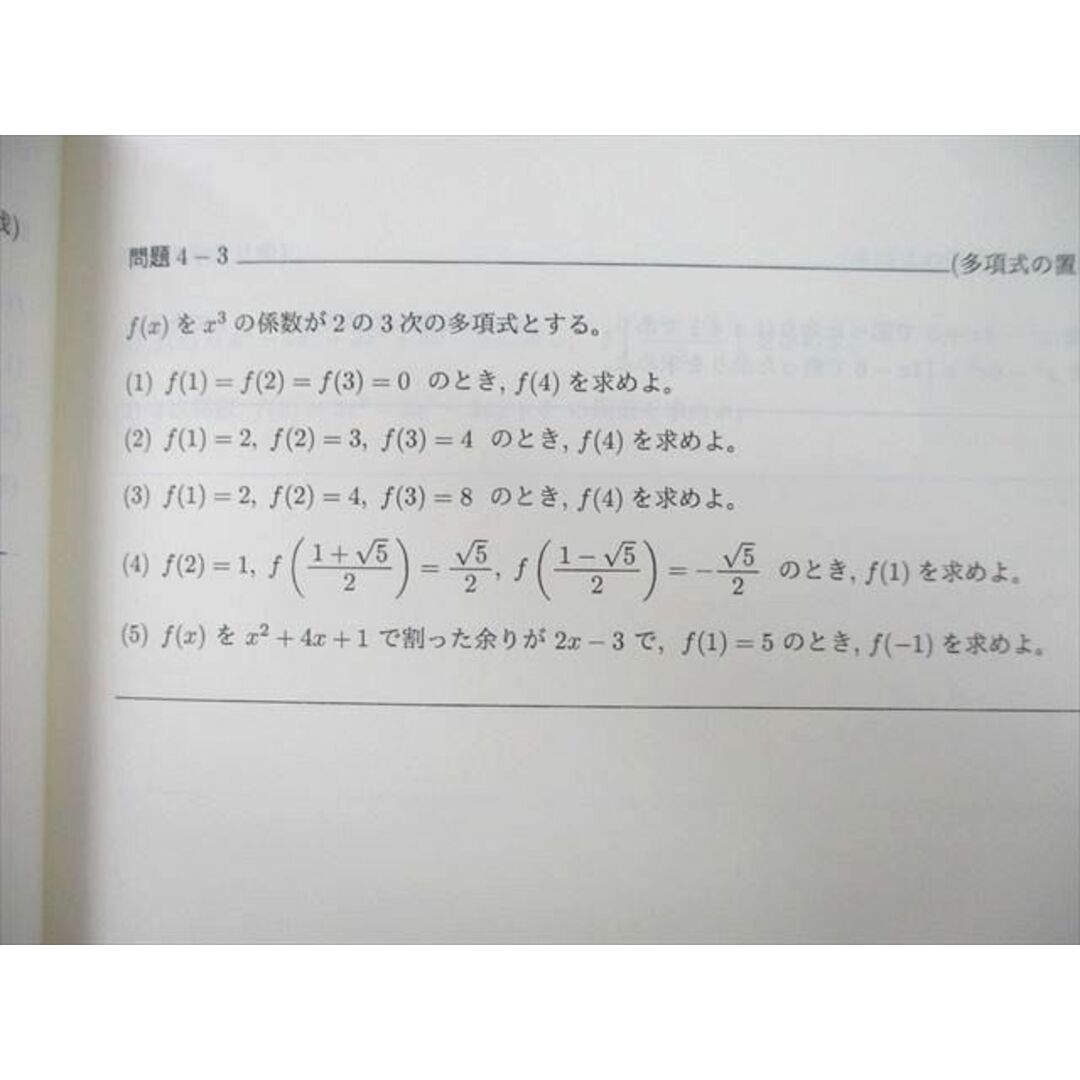 哉)
問題 4 − 3 (多項式の置
f(x) を x³ の係数が 2 の 3 次の多項式とする。
(1) f(1) = f(2) = f(3) = 0 のとき, f(4) を求めよ。
(2) f(1) = 2, f(2) = 3, f(3) = 4 のとき, f(4) を求めよ。
(3) f(1) = 2, f(2) = 4, f(3) = 8 のとき, f(4) を求めよ。
(4) f(2) = 1, f((1 + √5)/2) = √5/2, f((1 − √5)/2) = −√5/2 のとき, f(1) を求めよ。
(5) f(x) を x² + 4x + 1 で割った余りが 2x − 3 で, f(1) = 5 のとき, f(−1) を求めよ。